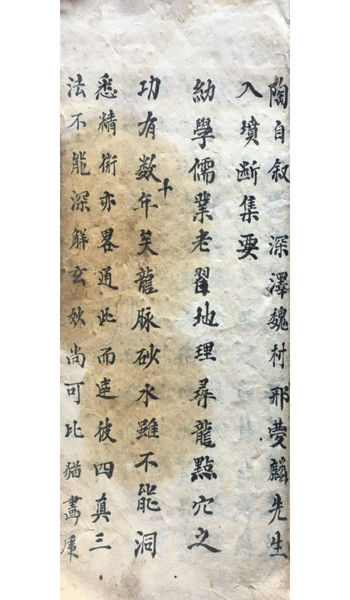 陶自叙 深澤魏村邢夢麟先生
入墳斷集要
幼學儒業老習地理尋龍點穴之
功有数十年矣龍脉砂水雖不能洞
悉精術亦畧通此而達彼四真三
法不能深觧玄妙尚可比猫畫虎